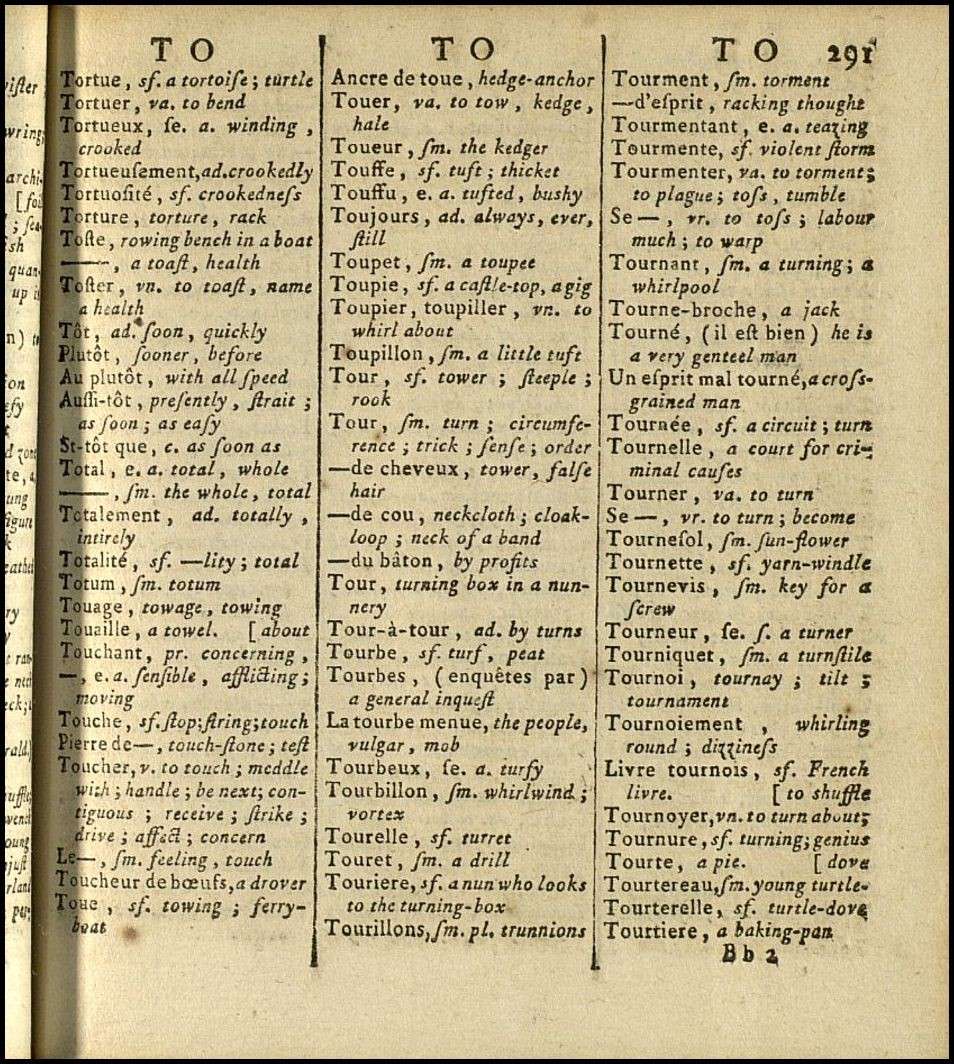 TO
Tortue, sf. a tortoiſe; turtle
Tortuer, va. to bend
Tortueux, ſe. a. winding,
crooked
Tortueuſement, ad. crookedly
Tortuoſité, sf. crookedneſs
Torture, torture, rack
Toſte, rowing bench in a boat
——, a toaſt, health
Toſter, vn. to toaſt, name
a health
Tôt, ad. ſoon, quickly
Plutôt, ſooner, before
Au plutôt, with all ſpeed
Auſſi-tôt, preſently, ſtrait;
as ſoon; as eaſy
St-tôt que, c. as ſoon as
Total, e. a. total, whole
——, ſm. the whole, total
Totalement, ad. totally,
intirely
Totalité, sf. —lity; total
Totum, ſm. totum
Touage, towage, towing
Touaille, a towel. [about
Touchant, pr. concerning,
—, e. a. ſenſible, afflicting;
moving
Touche, sf. ſtop; ſtring; touch
Pierre de—, touch-ſtone; teſt
Toucher, v. to touch; meddle
with; handle; be next; con-
tiguous; receive; ſtrike;
drive; affect; concern
Le—, ſm. feeling, touch
Toucheur de bœufs, a drover
Toue, sf. towing; ferry-
boat
TO
Ancre de toue, hedge-anchor
Touer, va. to tow, kedge,
hale
Toueur, ſm. the kedger
Touffe, sf. tuft; thicket
Touffu, e. a. tufted, bushy
Toujours, ad. always, ever,
ſtill
Toupet, ſm. a toupee
Toupie, sf. a caſtle-top, a gig
Toupier, toupiller, vn. to
whirl about
Toupillon, ſm. a little tuft
Tour, sf. tower; ſteeple;
rook
Tour, ſm. turn; circumfe-
rence; trick; ſenſe; order
—de cheveux, tower, falſe
hair
—de cou, neckcloth; cloak-
loop; neck of a band
—du bâton, by profits
Tour, turning box in a nun-
nery
Tour-à-tour, ad. by turns
Tourbe, sf. turf, peat
Tourbes, (enquêtes par)
a general inqueſt
La tourbe menue, the people,
vulgar, mob
Tourbeux, ſe. a. turfy
Tourbillon, ſm. whirlwind;
vortex
Tourelle, sf. turret
Touret, ſm. a drill
Touriere, sf. a nun who looks
to the turning-box
Tourillons, ſm. pl. trunnions
TO 291
Tourment, ſm. torment
—d'eſprit, racking thought
Tourmentant, e. a. teazing
Tourmente, sf. violent ſtorm
Tourmenter, va. to torment;
to plague; toſs, tumble
Se —, vr. to toſs; labour
much; to warp
Tournant, ſm. a turning; a
whirlpool
Tourne-broche, a jack
Tourné, (il eſt bien) he is
a very genteel man
Un eſprit mal tourné, a croſs-
grained man
Tournée, sf. a circuit; turn
Tournelle, a court for cri-
minal cauſes
Tourner, va. to turn
Se —, vr. to turn; become
Tourneſol, ſm. ſun-flower
Tournette, sf. yarn-windle
Tournevis, ſm. key for a
ſcrew
Tourneur, ſe. ſ. a turner
Tourniquet, ſm. a turnſtile
Tournoi, tournay; tilt;
tournament
Tournoiement, whirling
round; dizzineſs
Livre tournois, sf. French
livre. [to shuffle
Tournoyer, vn. to turn about;
Tournure, sf. turning; genius
Tourte, a pie. [dove
Tourtereau, ſm. young turtle-
Tourterelle, sf. turtle-dove
Tourtiere, a baking-pan
Bb 2